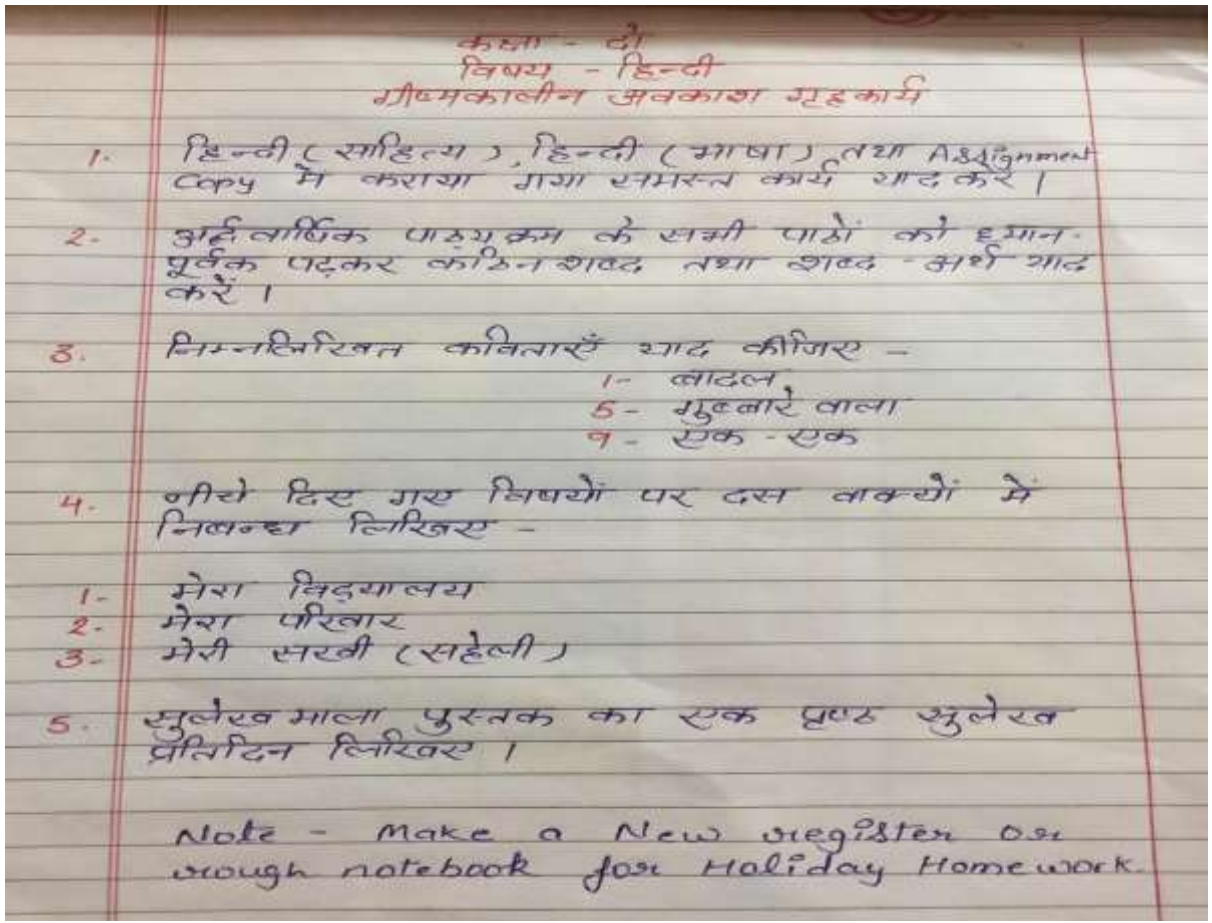 कक्षा - दो
विषय - हिन्दी
ग्रीष्मकालीन अवकाश गृहकार्य
1. हिन्दी (साहित्य), हिन्दी (भाषा) तथा Assignment
Copy में कराया गया समस्त कार्य याद करें ।
2- अर्द्धवार्षिक पाठ्यक्रम के सभी पाठों को ध्यान-
पूर्वक पढ़कर कठिन शब्द तथा शब्द - अर्थ याद
करें ।
3. निम्नलिखित कविताएँ याद कीजिए -
1- बादल
5- गुब्बारे वाला
9- एक - एक
4. नीचे दिए गए विषयों पर दस वाक्यों में
निबन्ध लिखिए -
1- मेरा विद्यालय
2- मेरा परिवार
3- मेरी सखी (सहेली)
5. सुलेख माला पुस्तक का एक पृष्ठ सुलेख
प्रतिदिन लिखिए ।
Note - Make a New register or
rough notebook for Holiday Homework.